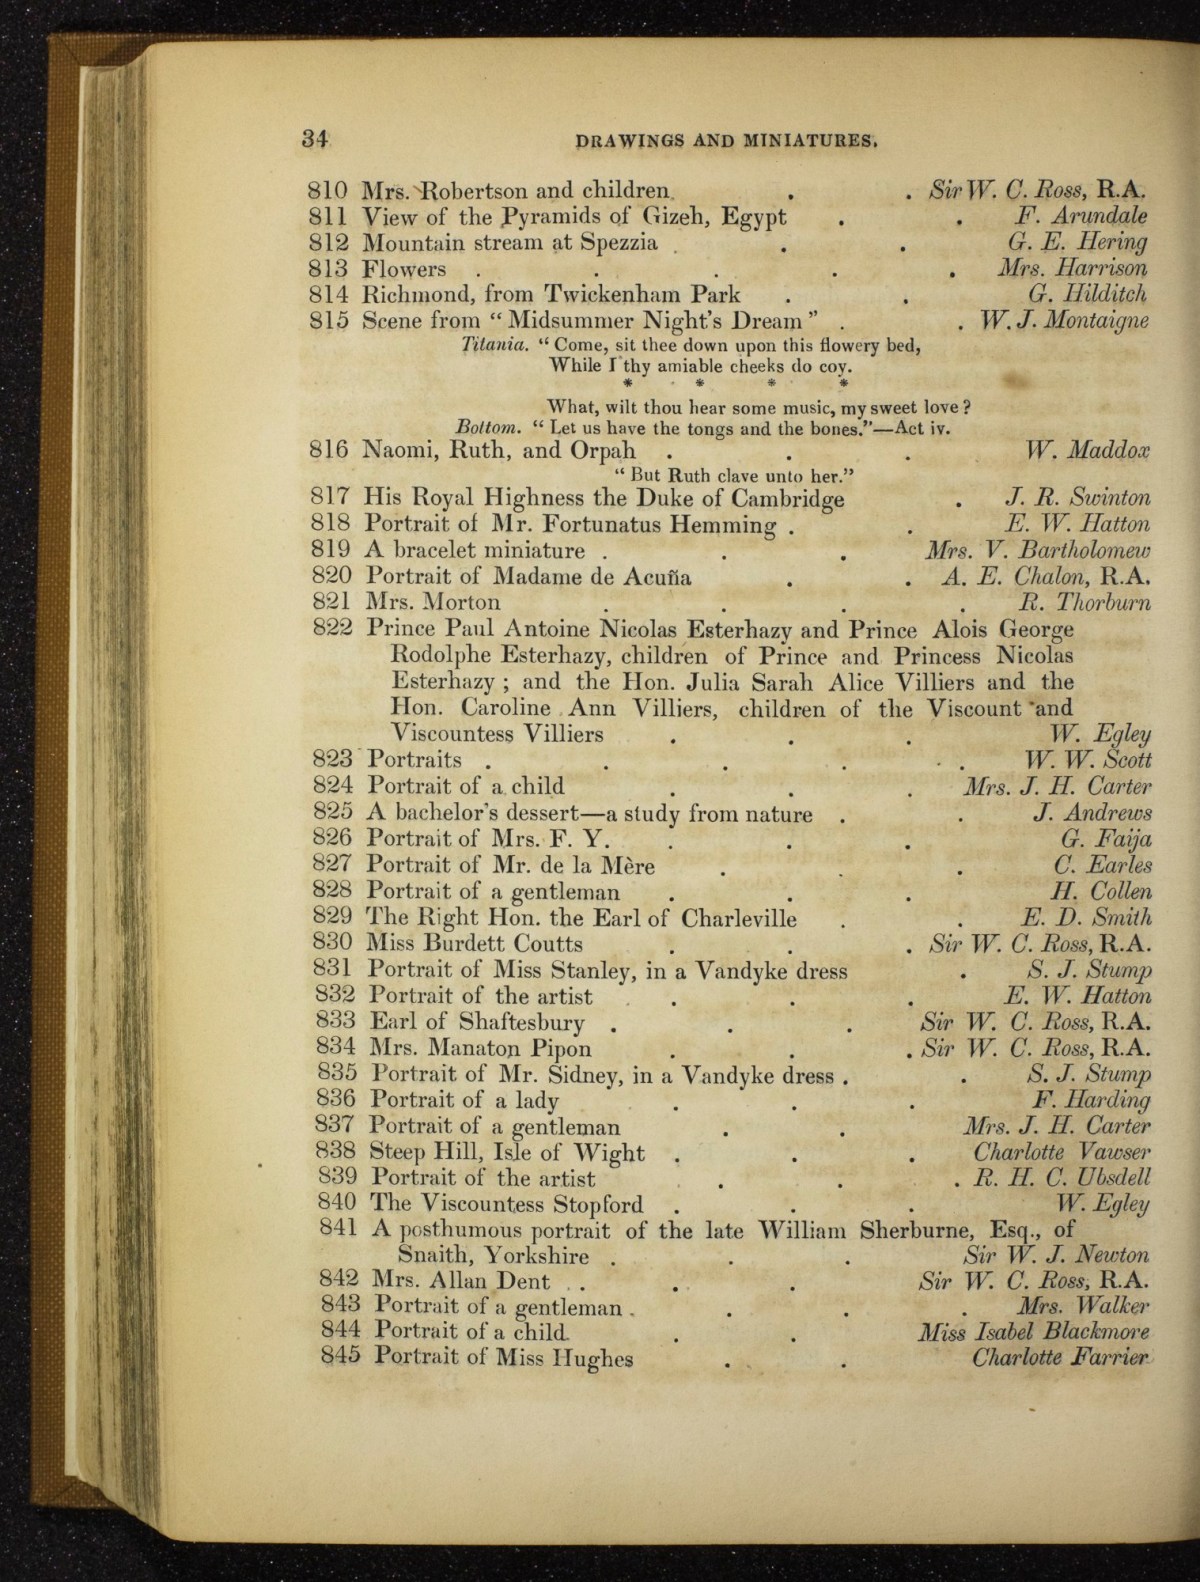 34 DRAWINGS AND MINIATURES.
810 Mrs. Robertson and children. . . Sir W. C. Ross, R.A.
811 View of the Pyramids of Gizeh, Egypt . . F. Arundale
812 Mountain stream at Spezzia . . . G. E. Hering
813 Flowers . . . . . Mrs. Harrison
814 Richmond, from Twickenham Park . . G. Hilditch
815 Scene from “ Midsummer Night's Dream ” . . W. J. Montaigne
Titania. “ Come, sit thee down upon this flowery bed,
While I thy amiable cheeks do coy.
* * * *
What, wilt thou hear some music, my sweet love ?
Bottom. “ Let us have the tongs and the bones.”—Act iv.
816 Naomi, Ruth, and Orpah . . . W. Maddox
“ But Ruth clave unto her.”
817 His Royal Highness the Duke of Cambridge . J. R. Swinton
818 Portrait of Mr. Fortunatus Hemming . . E. W. Hatton
819 A bracelet miniature . . . Mrs. V. Bartholomew
820 Portrait of Madame de Acuña . . A. E. Chalon, R.A.
821 Mrs. Morton . . . . R. Thorburn
822 Prince Paul Antoine Nicolas Esterhazy and Prince Alois George
Rodolphe Esterhazy, children of Prince and Princess Nicolas
Esterhazy ; and the Hon. Julia Sarah Alice Villiers and the
Hon. Caroline Ann Villiers, children of the Viscount and
Viscountess Villiers . . . W. Egley
823 Portraits . . . . . W. W. Scott
824 Portrait of a child . . . Mrs. J. H. Carter
825 A bachelor's dessert—a study from nature . . J. Andrews
826 Portrait of Mrs. F. Y. . . . G. Faija
827 Portrait of Mr. de la Mère . . . C. Earles
828 Portrait of a gentleman . . . H. Collen
829 The Right Hon. the Earl of Charleville . . E. D. Smith
830 Miss Burdett Coutts . . . Sir W. C. Ross, R.A.
831 Portrait of Miss Stanley, in a Vandyke dress . S. J. Stump
832 Portrait of the artist . . . E. W. Hatton
833 Earl of Shaftesbury . . . Sir W. C. Ross, R.A.
834 Mrs. Manaton Pipon . . . Sir W. C. Ross, R.A.
835 Portrait of Mr. Sidney, in a Vandyke dress . . S. J. Stump
836 Portrait of a lady . . . F. Harding
837 Portrait of a gentleman . . Mrs. J. H. Carter
838 Steep Hill, Isle of Wight . . . Charlotte Vawser
839 Portrait of the artist . . . R. H. C. Ubsdell
840 The Viscountess Stopford . . . W. Egley
841 A posthumous portrait of the late William Sherburne, Esq., of
Snaith, Yorkshire . . . Sir W. J. Newton
842 Mrs. Allan Dent . . . Sir W. C. Ross, R.A.
843 Portrait of a gentleman . . . . Mrs. Walker
844 Portrait of a child. . . Miss Isabel Blackmore
845 Portrait of Miss Hughes . . Charlotte Farrier